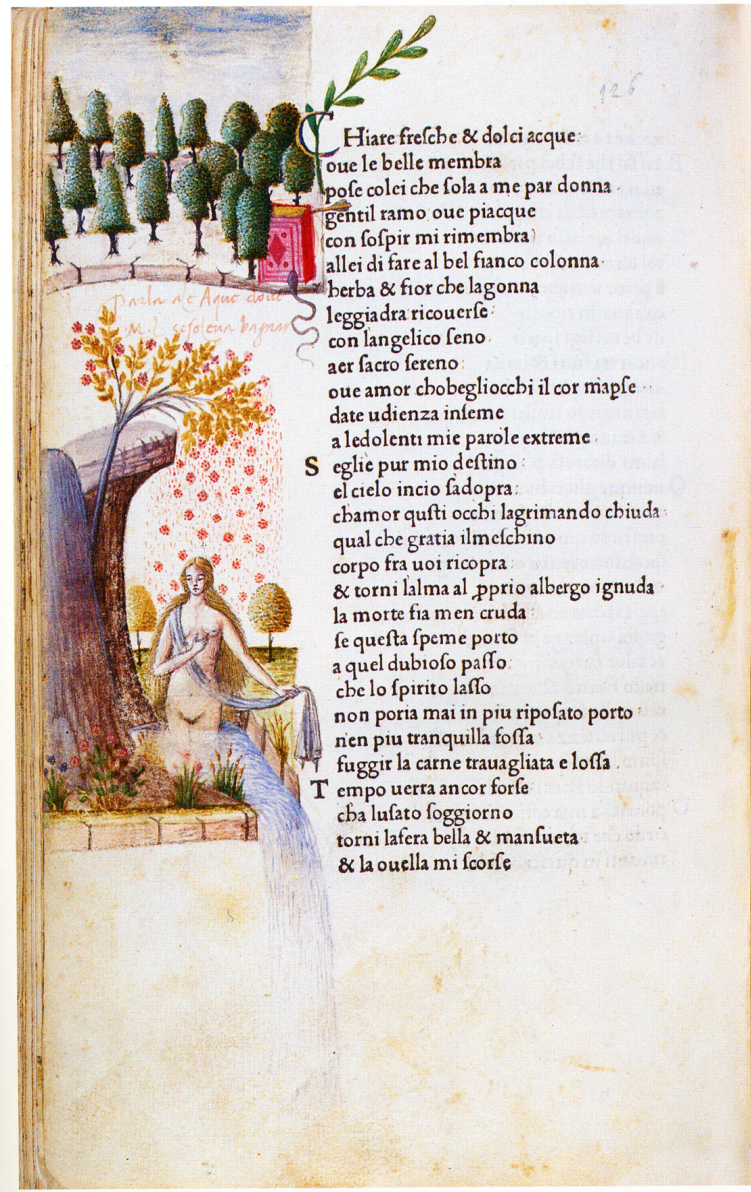 126
CHiare fresche & dolci acque:
oue le belle membra
pose colei che sola a me par donna
gentil ramo oue piacque
con sospir mi rimembra)
allei di fare al bel fianco colonna
herba & fior che lagonna
leggiadra ricouerse
con langelico seno
aer sacro sereno
oue amor chobegliocchi il cor mapse
date udienza inseme
a le dolenti mie parole extreme
S eglie pur mio destino
el cielo in cio sadopra:
chamor qusti occhi lagrimando chiuda
qual che gratia ilmeschino
corpo fra uoi ricopra
& torni lalma al pprio albergo ignuda
la morte fia men cruda
se questa speme porto
a quel dubioso passo
che lo spirito lasso
non poria mai in piu riposato porto
nen piu tranquilla fossa
fuggir la carne trauagliata e lossa
T empo uerra ancor forse
cha lusato soggiorno
torni lafera bella & mansueta
& la ouella mi scorse
parla a le Aque